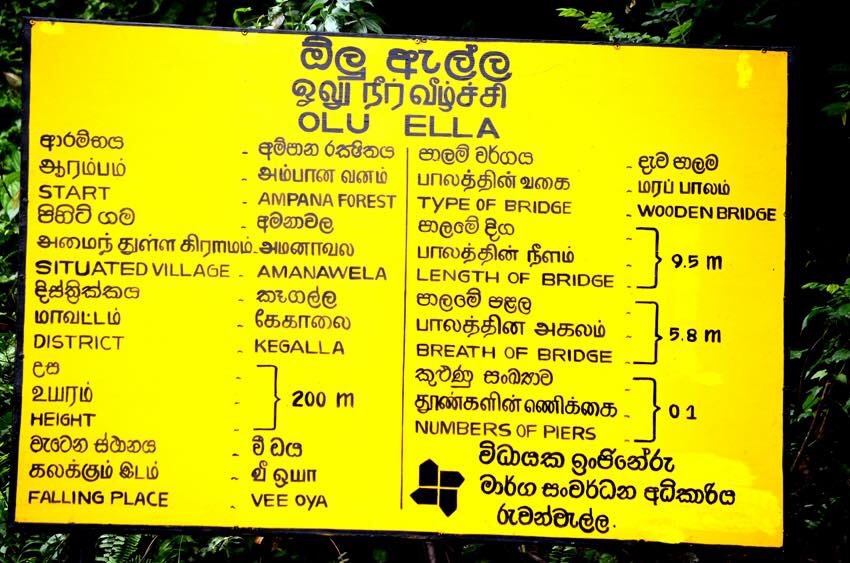 ඕලු ඇල්ල
ஓலு நீர்வீழ்ச்சி
OLU ELLA
ආරම්භය - අම්පාන රක්ෂිතය
ஆரம்பம் - அம்பான வனம்
START - AMPANA FOREST
පිහිටි ගම - අමනාවල
அமைந் துள்ள கிராமம் - அமனாவல
SITUATED VILLAGE - AMANAWELA
දිස්ත්‍රික්කය - කෑගල්ල
மாவட்டம் - கேகாலை
DISTRICT - KEGALLA
උස -
உயரம் - 200 m
HEIGHT -
වැටෙන ස්ථානය - වී ඔය
கலக்கும் இடம் - வீ ஓயா
FALLING PLACE - VEE OYA
පාලම් වර්ගය - දැව පාලම
பாலத்தின் வகை - மரப் பாலம்
TYPE OF BRIDGE - WOODEN BRIDGE
පාලමේ දිග -
பாலத்தின் நீளம் - 9.5 m
LENGTH OF BRIDGE -
පාලමේ පළල -
பாலத்தின அகலம் - 5.8 m
BREATH OF BRIDGE -
කුළුණු සංඛ්‍යාව -
தூண்களின் ணிக்கை - 01
NUMBERS OF PIERS -
විධායක ඉංජිනේරු
මාර්ග සංවර්ධන අධිකාරිය
රුවන්වැල්ල.